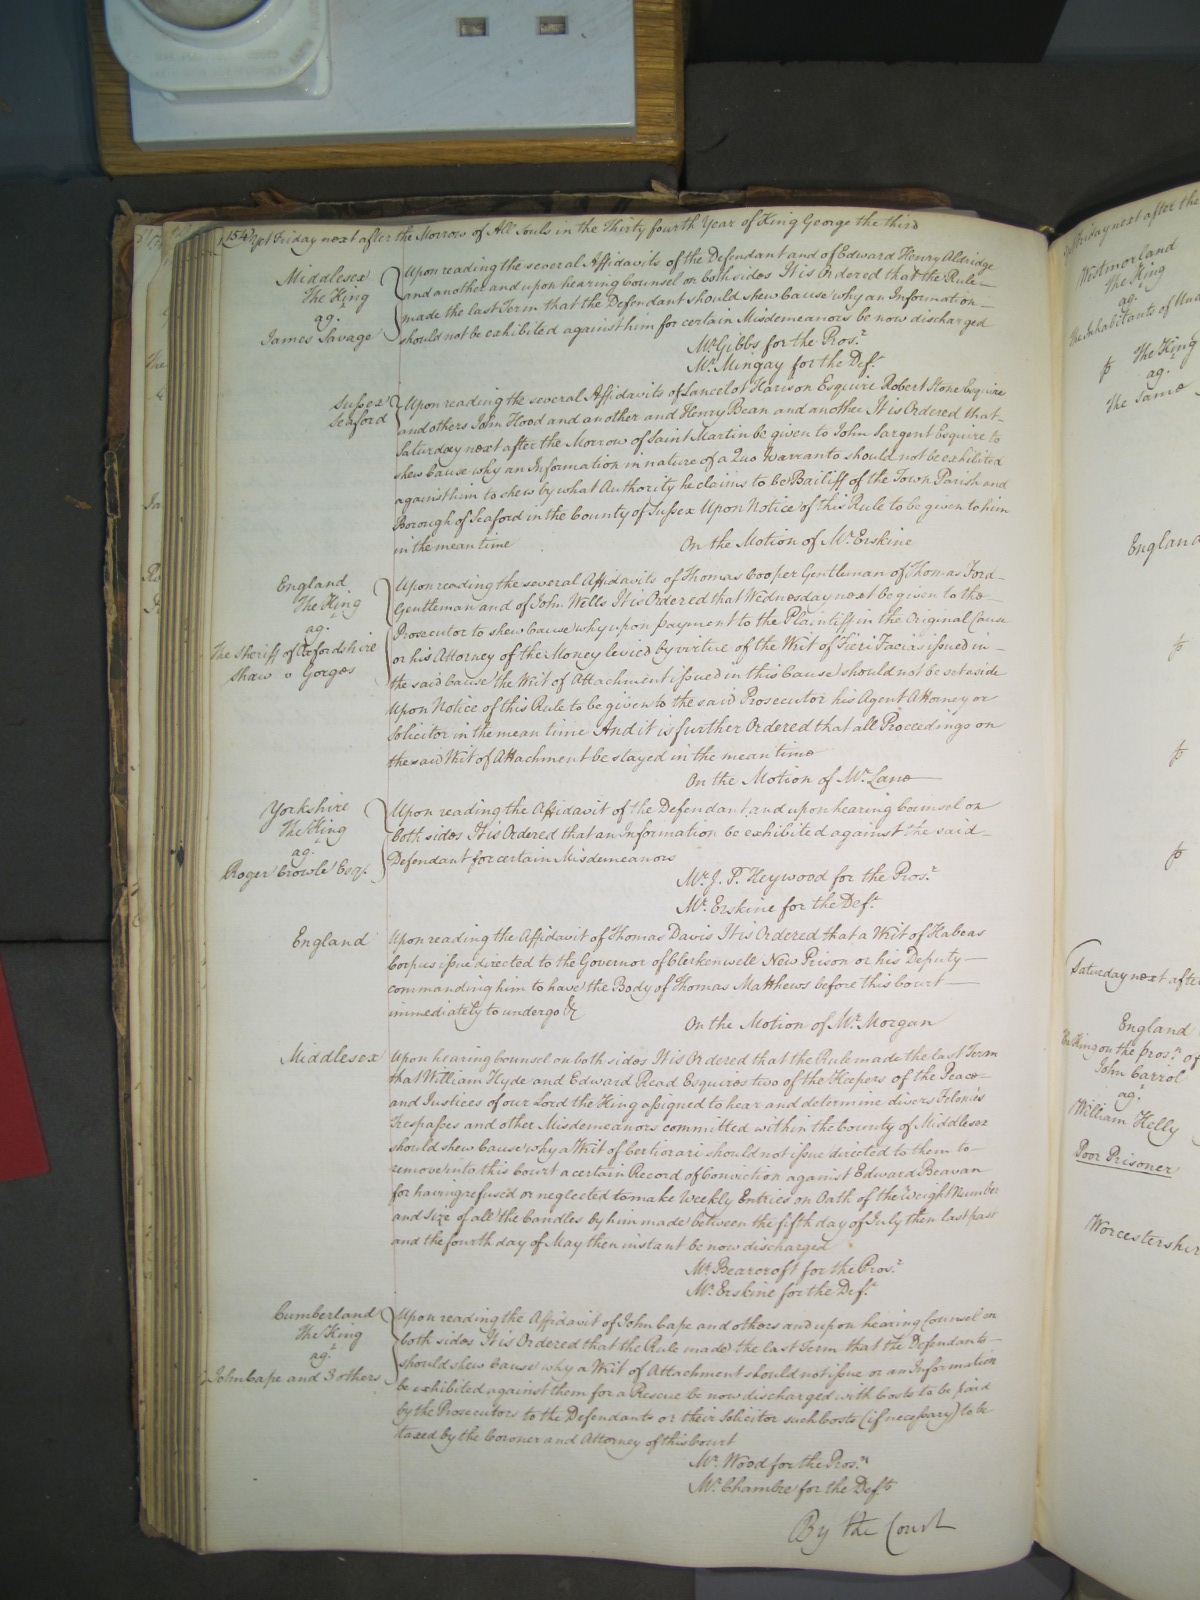 154 Yet Friday next after the Morrow of All Souls in the Thirty fourth Year of King George the third
Middlesex
The King
agt.
James Savage
Upon reading the several Affidavits of the Defendant and of Edward Henry Aldridge
and another and upon hearing Counsel on both sides It is Ordered that the Rule
made the last Term that the Defendant should shew Cause why an Information
should not be exhibited against him for certain Misdemeanors be now discharged
Mr. Gibbs for the Prosr.
Mr. Mingay for the Deft.
Sussex
Seaford
Upon reading the several Affidavits of Lancelot Harison Esquire Robert Stone Esquire
and others John Hood and another and Henry Bean and another It is Ordered that
Saturday next after the Morrow of Saint Martin be given to John Sargent Esquire to
shew Cause why an Information in nature of a Quo Warranto should not be exhibited
against him to shew by what Authority he claims to be Bailiff of the Town Parish and
Borough of Seaford in the County of Sussex Upon Notice of this Rule to be given to him
in the mean time
On the Motion of Mr. Erskine
England
The King
agt.
The Sheriff of Oxfordshire
Shaw v Gorges
Upon reading the several Affidavits of Thomas Cooper Gentleman of Thomas Ford
Gentleman and of John Wells It is Ordered that Wednesday next be given to the
Prosecutor to shew Cause why upon payment to the Plaintiff in the Original Cause
or his Attorney of the Money levied by virtue of the Writ of Fieri Facias issued in
the said Cause the Writ of Attachment issued in this Cause should not be set aside
Upon Notice of this Rule to be given to the said Prosecutor his Agent Attorney or
Solicitor in the mean time And it is further Ordered that all Proceedings on
the said Writ of Attachment be stayed in the mean time
On the Motion of Mr. Lane
Yorkshire
The King
agt.
Roger Crowle Esqr.
Upon reading the Affidavit of the Defendant and upon hearing Counsel on
both sides It is Ordered that an Information be exhibited against the said
Defendant for certain Misdemeanors
Mr. J. P. Heywood for the Prosr.
Mr. Erskine for the Deft.
England
Upon reading the Affidavit of Thomas Davis It is Ordered that a Writ of Habeas
Corpus issue directed to the Governor of Clerkenwell New Prison or his Deputy
commanding him to have the Body of Thomas Matthews before this Court
immediately to undergo &c
On the Motion of Mr. Morgan
Middlesex
Upon hearing Counsel on both sides It is Ordered that the Rule made the last Term
that William Hyde and Edward Read Esquires two of the Keepers of the Peace
and Justices of our Lord the King assigned to hear and determine divers Felonies
Trespasses and other Misdemeanors committed within the County of Middlesex
should shew Cause why a Writ of Certiorari should not issue directed to them to
remove into this Court a certain Record of Conviction against Edward Beavan
for having refused or neglected to make Weekly Entries on Oath of the Weight Number
and Size of all the Candles by him made between the fifth day of July then last past
and the fourth day of May then instant be now discharged
Mr. Bearcroft for the Prosr.
Mr. Erskine for the Deft.
Cumberland
The King
agt.
John Cape and 3 others
Upon reading the Affidavit of John Cape and others and upon hearing Counsel on
both sides It is Ordered that the Rule made the last Term that the Defendants
should shew Cause why a Writ of Attachment should not issue or an Information
be exhibited against them for a Rescue be now discharged with Costs to be paid
by the Prosecutors to the Defendants or their Solicitor such Costs (if necessary) to be
taxed by the Coroner and Attorney of this Court
Mr. Wood for the Prosrs
Mr. Chambre for the Defts
By the Court
Friday next after the
Westmorland
The King
agt.
The Inhabitants of
The King
agt.
The Same
England
Saturday next after
England
The King on the Prosn. of
John Carrol
agt.
William Kelly
Poor Prisoner
Worcestershire